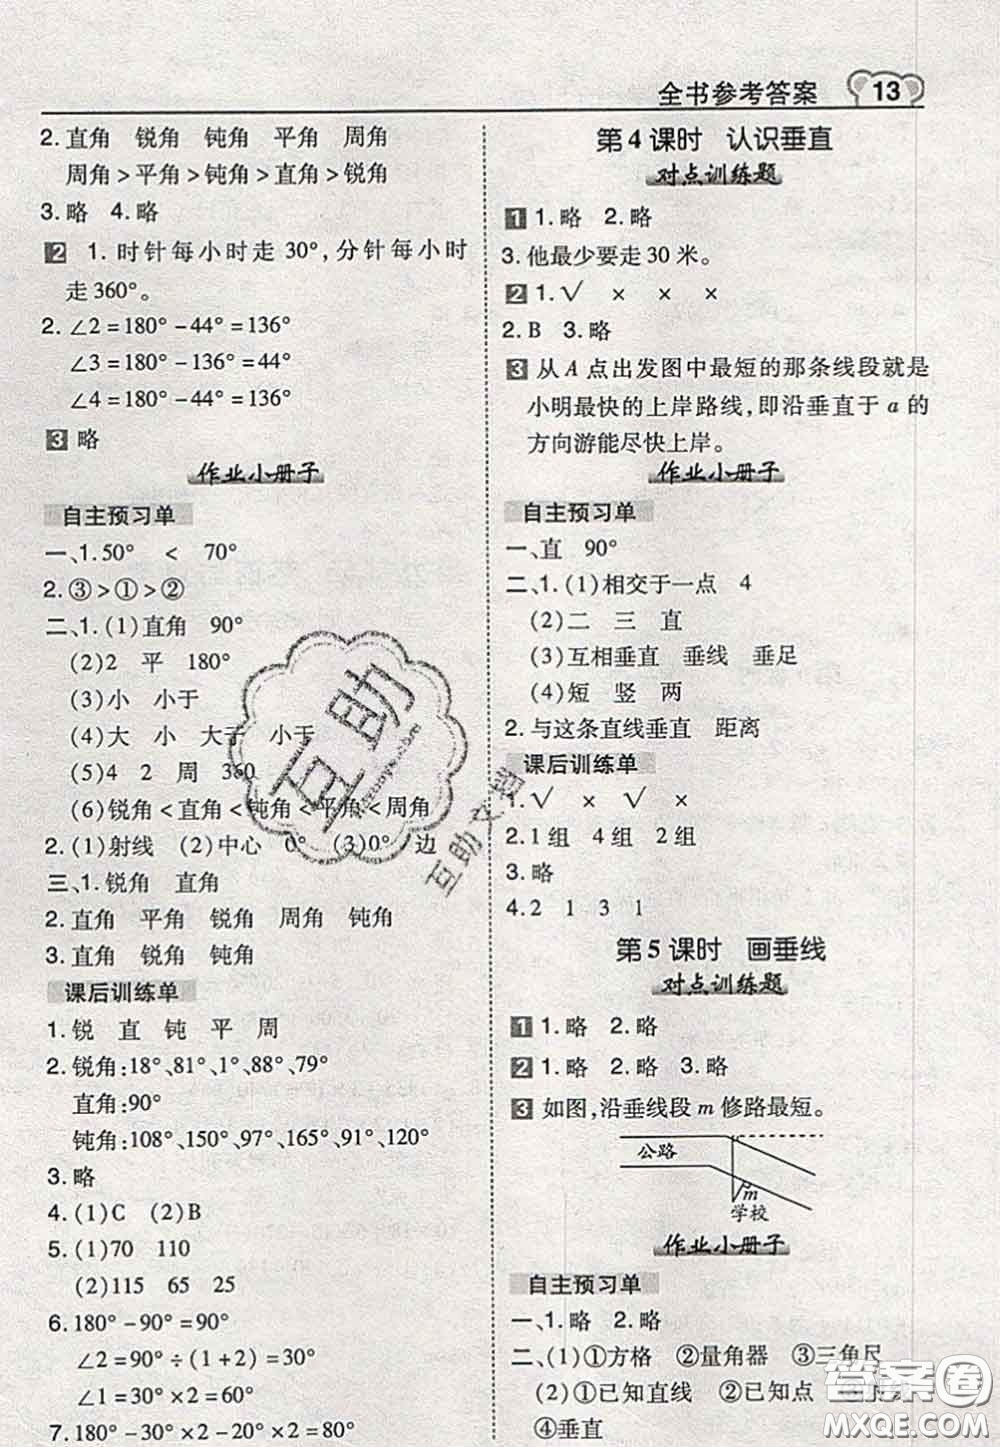 全书参考答案 13
2. 直角 锐角 钝角 平角 周角
周角>平角>钝角>直角>锐角
3. 略 4. 略
2 1. 时针每小时走30°,分针每小时
走360°。
2. ∠2=180°-44°=136°
∠3=180°-136°=44°
∠4=180°-44°=136°
3 略
作业小册子
自主预习单
一、1.50° < 70°
2.③>①>②
二、1.(1)直角 90°
(2)2 平 180°
(3)小 小于
(4)大 小 大于 小于
(5)4 2 周 360
(6)锐角<直角<钝角<平角<周角
2.(1)射线 (2)中心 0° (3)0° 边
三、1.锐角 直角
2. 直角 平角 锐角 周角 钝角
3. 直角 锐角 钝角
课后训练单
1. 锐 直 钝 平 周
2. 锐角:18°、81°、1°、88°、79°
直角:90°
钝角:108°、150°、97°、165°、91°、120°
3. 略
4.(1)C (2)B
5.(1)70 110
(2)115 65 25
6. 180°-90°=90°
∠2=90°÷(1+2)=30°
∠1=30°×2=60°
7. 180°-30°×2-20°×2=80°
第4课时 认识垂直
对点训练题
1 1. 略 2. 略
3. 他最少要走30米。
2 1. √ × × ×
2. B 3. 略
3 从A点出发图中最短的那条线段就是
小明最快的上岸路线,即沿垂直于a的
方向游能尽快上岸。
作业小册子
自主预习单
一、直 90°
二、1.(1)相交于一点 4
(2)二 三 直
(3)互相垂直 垂线 垂足
(4)短 竖 两
2. 与这条直线垂直 距离
课后训练单
1. √ × √ ×
2.1组 4组 2组
3. 略
4.2 1 3 1
第5课时 画垂线
对点训练题
1 1. 略 2. 略
2 1. 略 2. 略 3. 略
3 如图,沿垂线段m修路最短。
公路
m
学校
作业小册子
自主预习单
一、1.略 2.略
二、(1)①方格 ②量角器 ③三角尺
(2)①已知直线 ②已知点 ③
④垂直
互助
互助文
答案圈
MXQE.COM